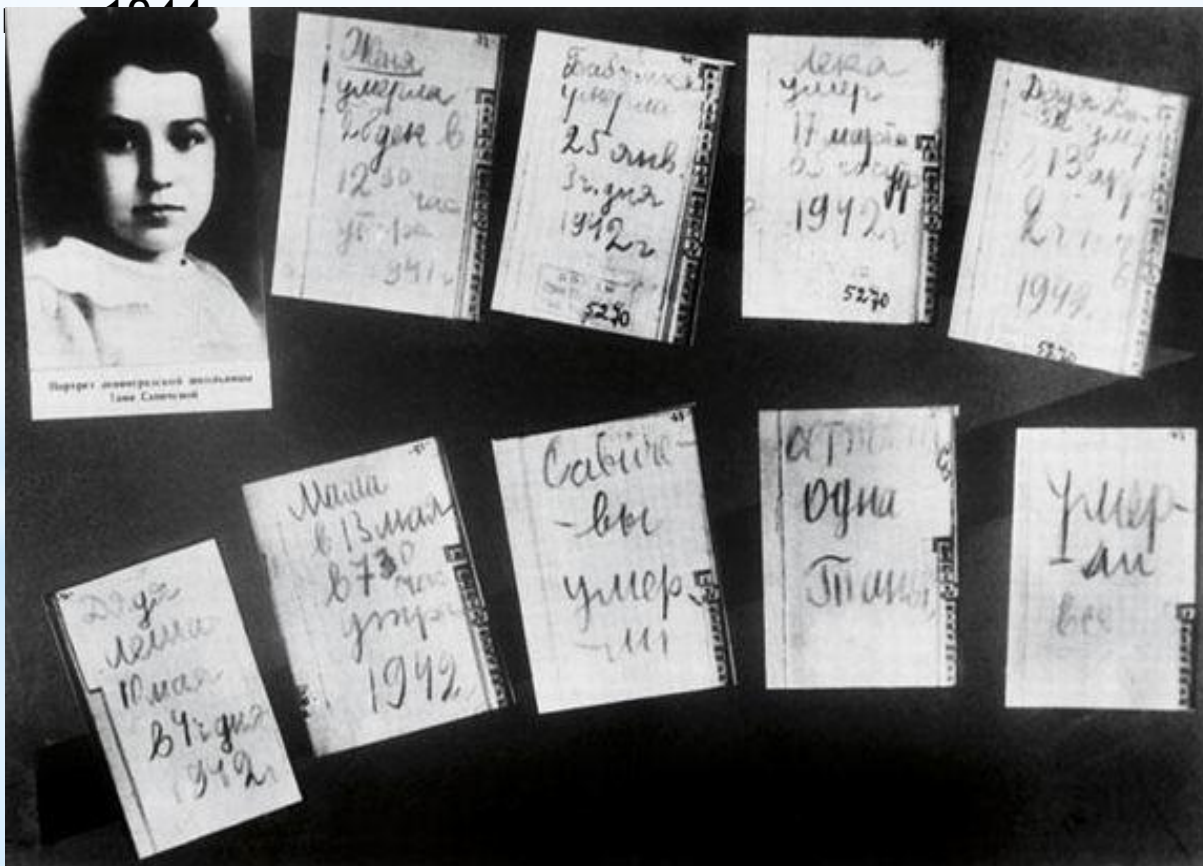 1944
Портрет ленинградской школьницы
Тани Савичевой
Женя
умерла
28 дек в
12 30
час
утра
1941 г
Бабушка
умерла
25 янв.
3 ч. дня
1942 г
5270
Лека
умер
17 марта
в 5 час утр
1942 г
5270
Дядя Ва-
ся умер
в 13 апр
2 ч ночь
1942
5270
Дядя
Леша
10 мая
в 4 ч дня
1942 г
Мама
в 13 мая
в 7 30
час
утра
1942
Савиче-
-вы
умер
-ли
одна
Таня
Умер-
-ли
все